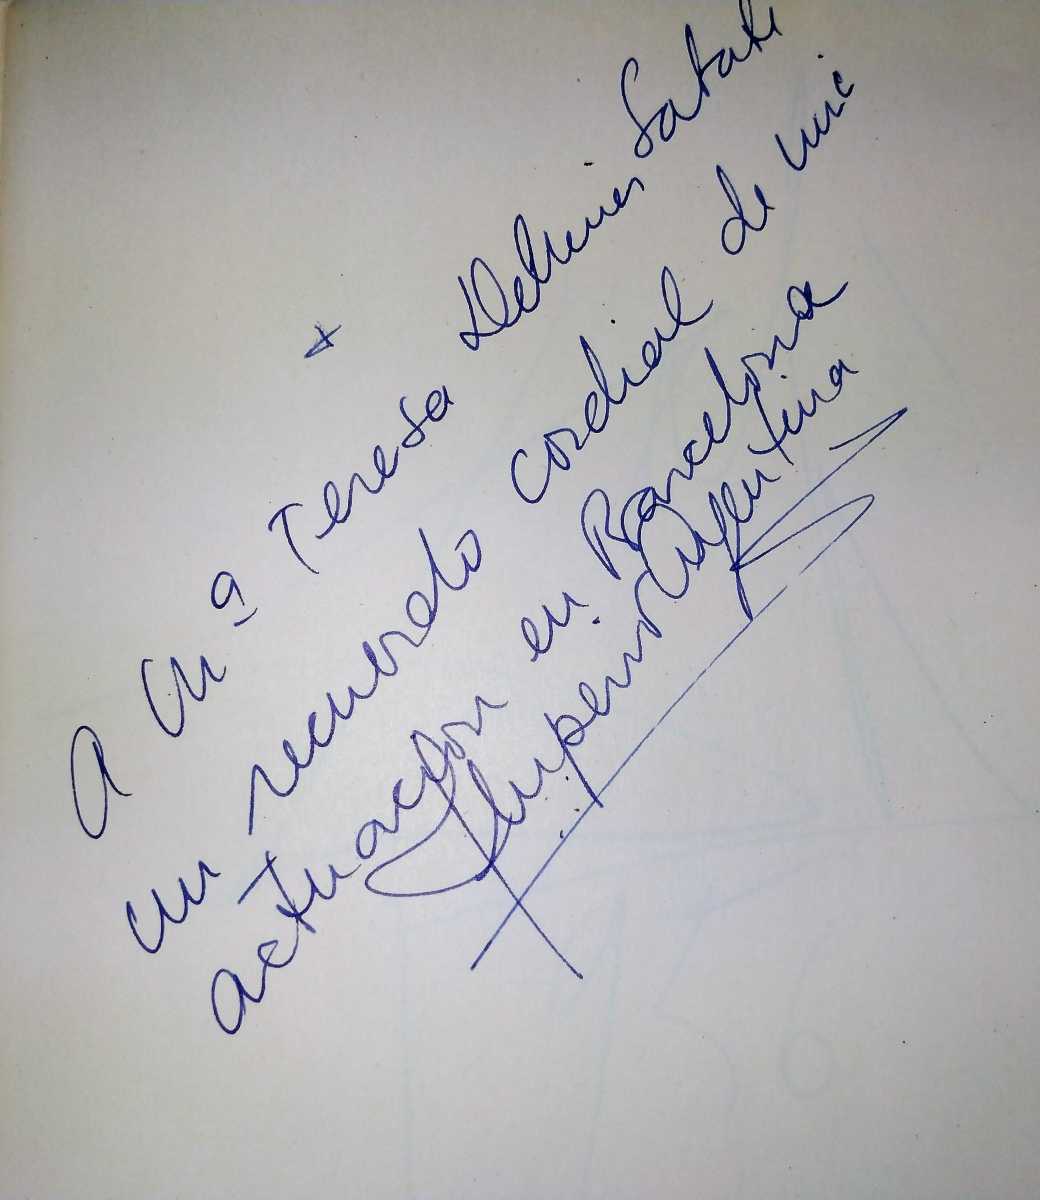 A Mª Teresa
un recuerdo cordial de mi
actuacion en Barcelona
Imperio Argentina